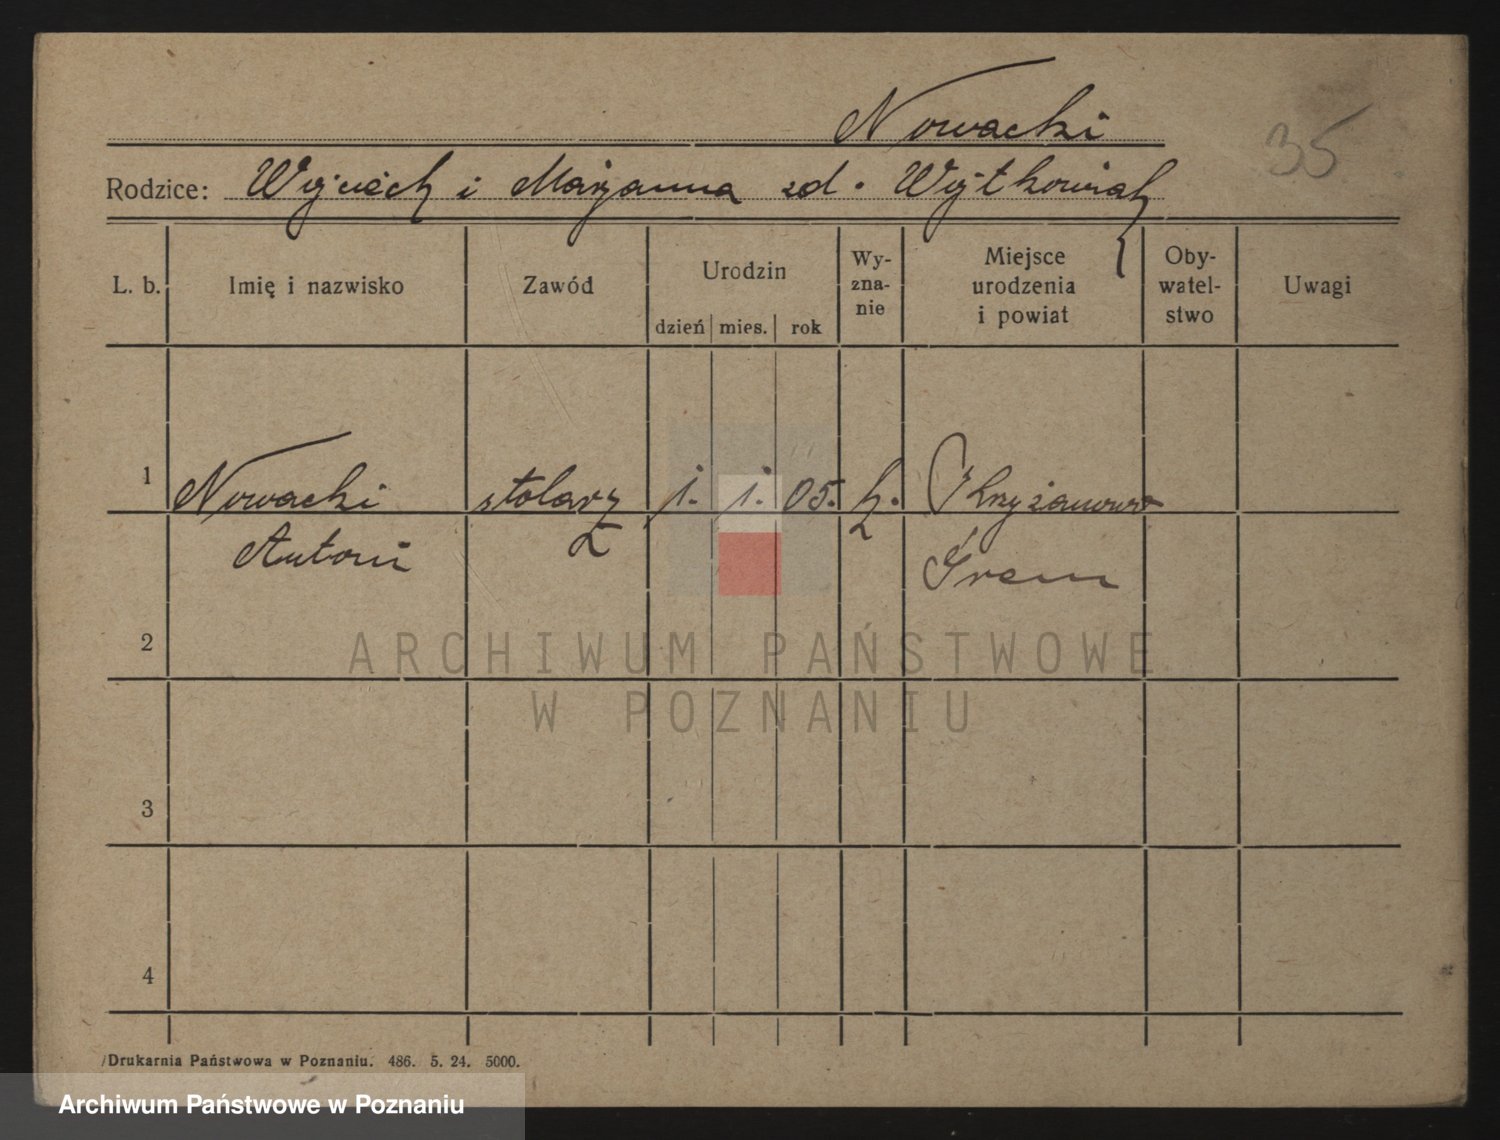 Nowacki
35
Rodzice: Wojciech i Marjanna zd. Wojtkowiak
L. b. Imię i nazwisko Zawód Urodzin dzień mies. rok Wy-zna-nie Miejsce urodzenia i powiat Oby-watel-stwo Uwagi
1 Nowacki stolarz 1. 1. 05. k. Krzyżanowo
Antoni Śrem
2
ARCHIWUM PAŃSTWOWE
W POZNANIU
3
4
Drukarnia Państwowa w Poznaniu. 486. 5. 24. 5000.
Archiwum Państwowe w Poznaniu